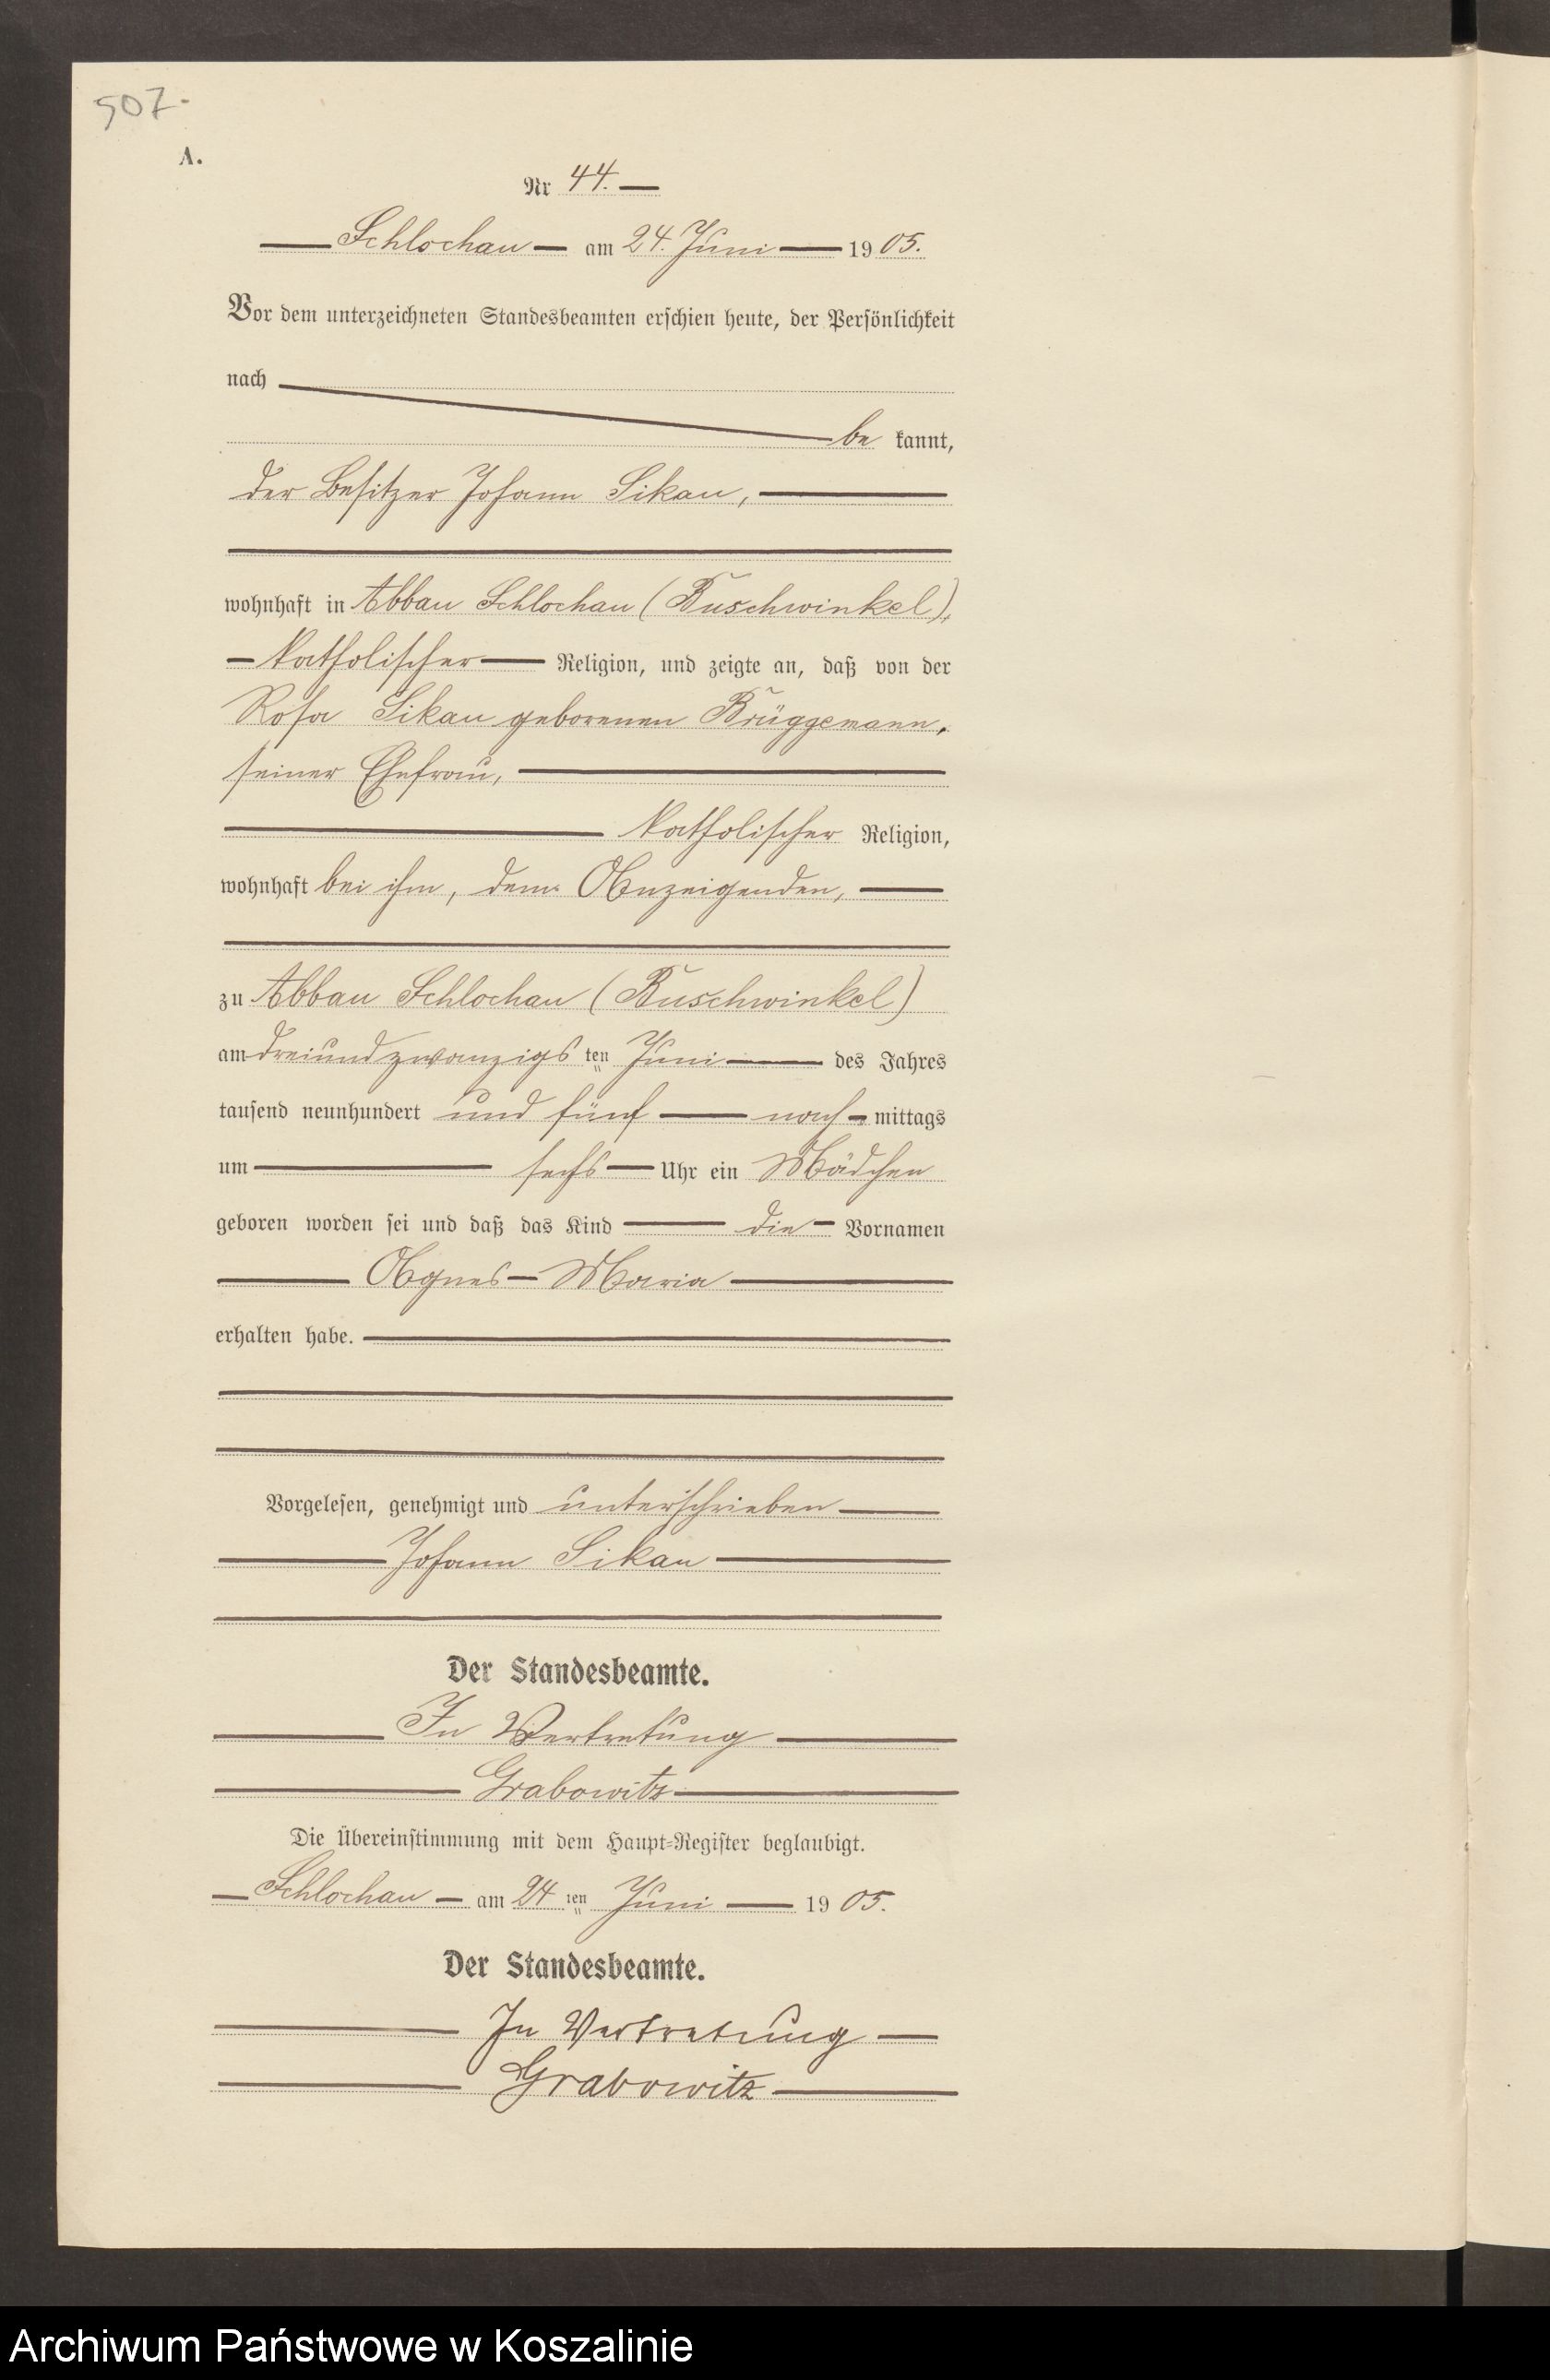 507.
A.
Nr 44.
Schlochau am 24. Juni 1905.
Vor dem unterzeichneten Standesbeamten erschien heute, der Persönlichkeit
nach
be kannt,
der Besitzer Johann Sikau,
wohnhaft in Abbau Schlochau (Buschwinkel),
katholischer Religion, und zeigte an, daß von der
Rosa Sikau geborenen Brüggemann,
seiner Ehefrau,
katholischer Religion,
wohnhaft bei ihm, dem Anzeigenden,
zu Abbau Schlochau (Buschwinkel)
am dreiundzwanzigsten Juni des Jahres
tausend neunhundert und fünf nachmittags
um sechs Uhr ein Mädchen
geboren worden sei und daß das Kind die Vornamen
Agnes Maria
erhalten habe.
Vorgelesen, genehmigt und unterschrieben
Johann Sikau
Der Standesbeamte.
In Vertretung
Grabowitz
Die Übereinstimmung mit dem Haupt-Register beglaubigt.
Schlochau am 24ten Juni 1905.
Der Standesbeamte.
In Vertretung
Grabowitz
Archiwum Państwowe w Koszalinie